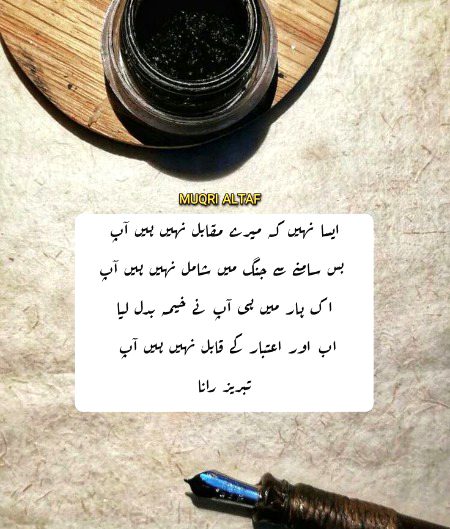 MUQRI ALTAF
ایسا نہیں کہ میرے مقابل نہیں ہیں آپ
بس سامنے سے جنگ میں شامل نہیں ہیں آپ
اک ہار میں ہی آپ نے خیمہ بدل لیا
اب اور اعتبار کے قابل نہیں ہیں آپ
تبریز رانا